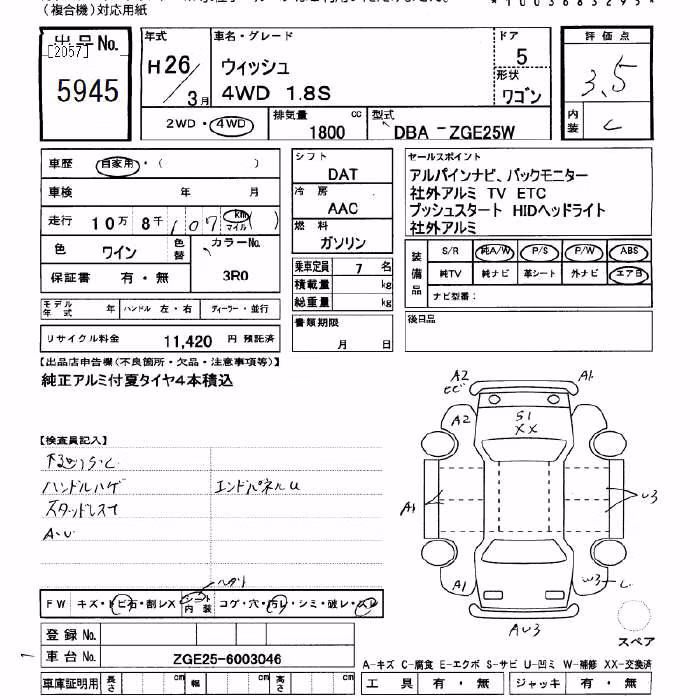 (複合機)対応用紙
*1003683295*
出品No.
[2057]
5945
年式
H26/3月
車名・グレード
ウィッシュ
4WD 1.8S
ドア
5
形状
ワゴン
評価点
3.5
内装
C
2WD・4WD
排気量
1800 cc
型式
DBA-ZGE25W
車歴 自家用・( )
車検 年 月
走行 10万8千107 km マイル ( )
色 ワイン 色替
カラーNo. 3R0
保証書 有・無
モデル年式 年 ハンドル 左・右 ディーラー・並行
リサイクル料金 11,420 円 預託済
シフト
DAT
冷房
AAC
燃料
ガソリン
乗車定員 7 名
積載量 kg
総重量 kg
書類期限
月 日
セールスポイント
アルパインナビ、バックモニター
社外アルミ TV ETC
プッシュスタート HIDヘッドライト
社外アルミ
装備品
S/R 純A/W P/S P/W ABS
純TV 純ナビ 革シート 外ナビ エアB
ナビ型番:
後日品
【出品店申告欄(不良箇所・欠品・注意事項等)】
純正アルミ付夏タイヤ4本積込
【検査員記入】
ハンドルハゲ
エンドパネルU
スタッドレス
A・U
FW キズ・トビ石・割レX
シート内装
コゲ・穴・汚レ・シミ・破レ・スレ
登録No.
車台No. ZGE25-6003046
車庫証明用 長さ cm 幅 cm 高さ cm
A2
A1
A2
S1
XX
A1
U3
A1
W3
AU3
スペア
A-キズ C-腐食 E-エクボ S-サビ U-凹ミ W-補修 XX-交換済
工具 有・無 ジャッキ 有・無